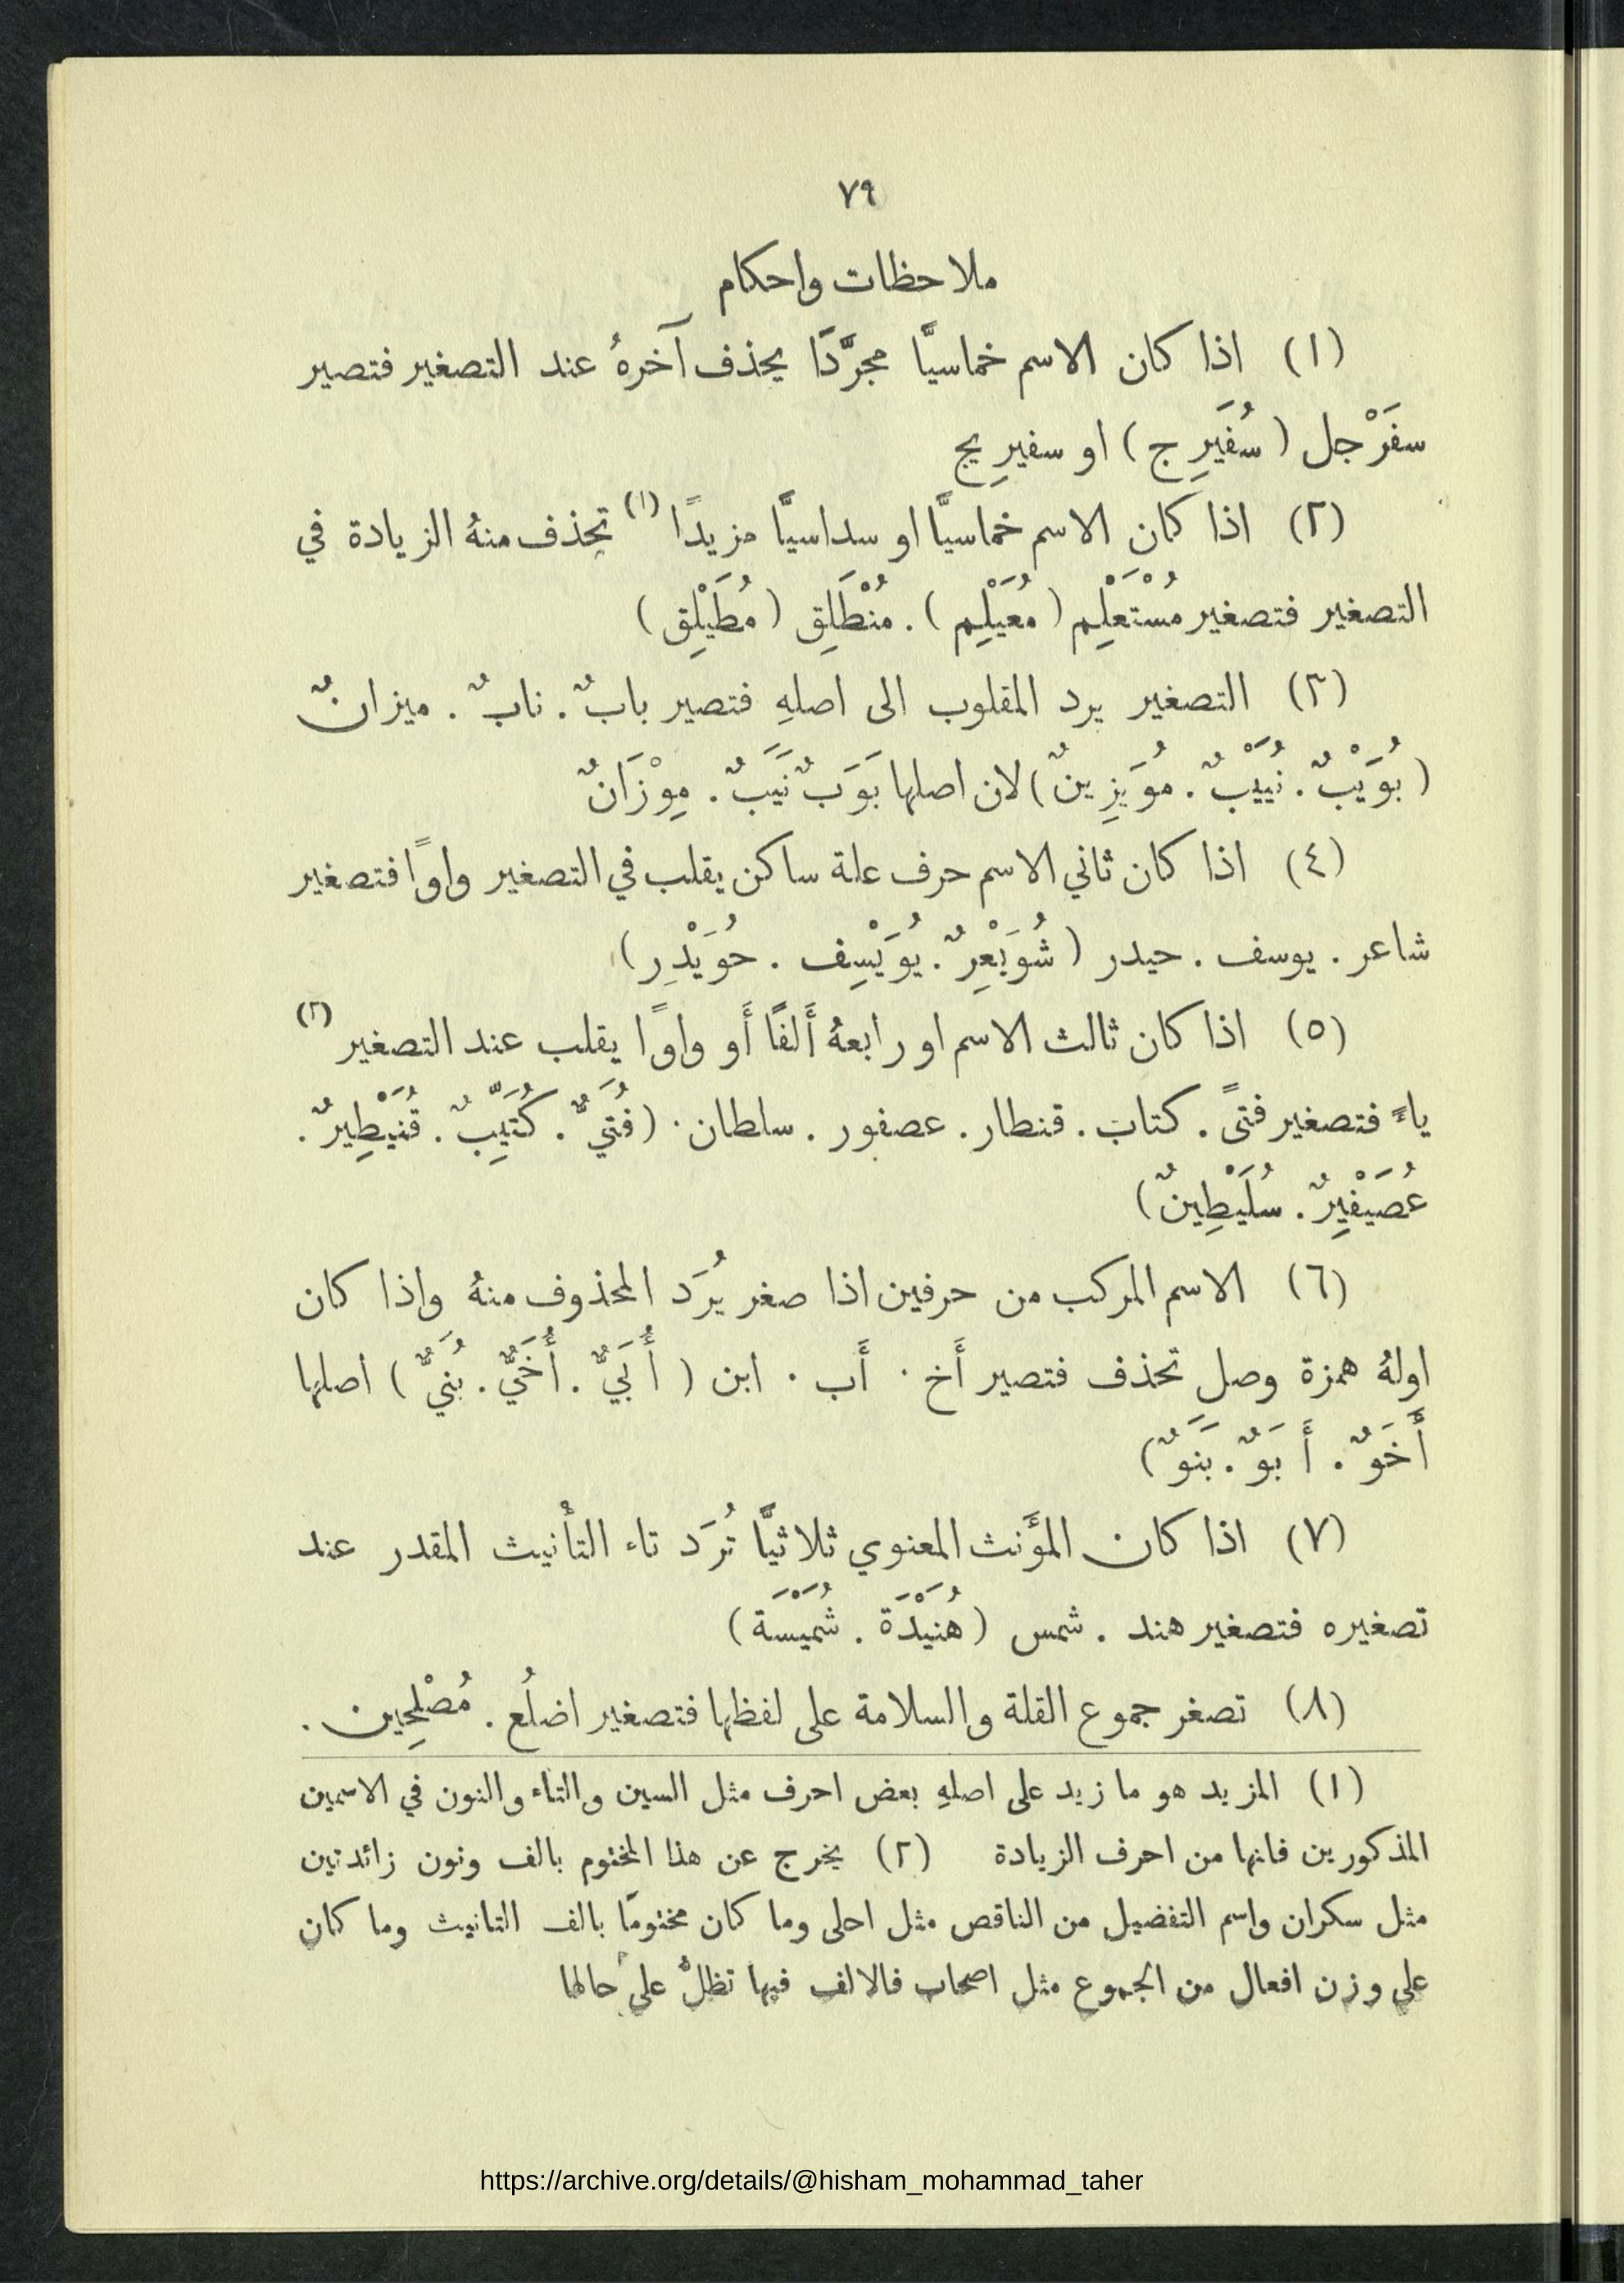 ٧٩
ملاحظات واحكام
(١) اذا كان الاسم خماسيًّا مجرَّدًا يحذف آخرهُ عند التصغير فتصير
سفَرْجل (سُفَيرِج) او سفيرِيج
(٢) اذا كان الاسم خماسيًّا او سداسيًّا مزيدًا (١) تحذف منهُ الزيادة في
التصغير فتصغير مُسْتَعْلِم (مُعَيْلِم). مُنْطَلِق (مُطَيْلِق)
(٣) التصغير يرد المقلوب الى اصلهِ فتصير بابٌ. نابٌ. ميزانٌ
(بُوَيْبٌ. نُيَيْبٌ. مُوَيزِينٌ) لان اصلها بَوَبٌ نَيَبٌ. مِوْزَانٌ
(٤) اذا كان ثاني الاسم حرف علة ساكن يقلب في التصغير واوًا فتصغير
شاعر. يوسف. حيدر (شُوَيْعِرٌ. يُوَيْسِف. حُوَيْدِر)
(٥) اذا كان ثالث الاسم او رابعهُ أَلفًا أَو واوًا يقلب عند التصغير (٢)
ياءً فتصغير فتىً. كتاب. قنطار. عصفور. سلطان. (فُتَيٌّ. كُتَيِّبٌ. قُنَيْطِيرٌ.
عُصَيْفِيرٌ. سُلَيْطِينٌ)
(٦) الاسم المركب من حرفين اذا صغر يُرَد المحذوف منهُ واذا كان
اولهُ همزة وصل تحذف فتصير أَخ. أَب. ابن (أُبَيٌّ. أُخَيٌّ. بُنَيٌّ) اصلها
أَخَوٌ. أَبَوٌ. بَنَوٌ)
(٧) اذا كان المؤَنث المعنوي ثلاثيًّا تُرَد تاء التأنيث المقدر عند
تصغيره فتصغير هند. شمس (هُنَيْدَة. شُمَيْسَة)
(٨) تصغر جموع القلة والسلامة على لفظها فتصغير اضلُع. مُصْلِحين.
(١) المزيد هو ما زيد على اصلهِ بعض احرف مثل السين والتاء والنون في الاسمين
المذكورين فانها من احرف الزيادة (٢) يخرج عن هذا المختوم بالف ونون زائدتين
مثل سكران واسم التفضيل من الناقص مثل احلى وما كان مختومًا بالف التانيث وما كان
على وزن افعال من الجموع مثل اصحاب فالالف فيها تظلُّ على حالها
https://archive.org/details/@hisham_mohammad_taher